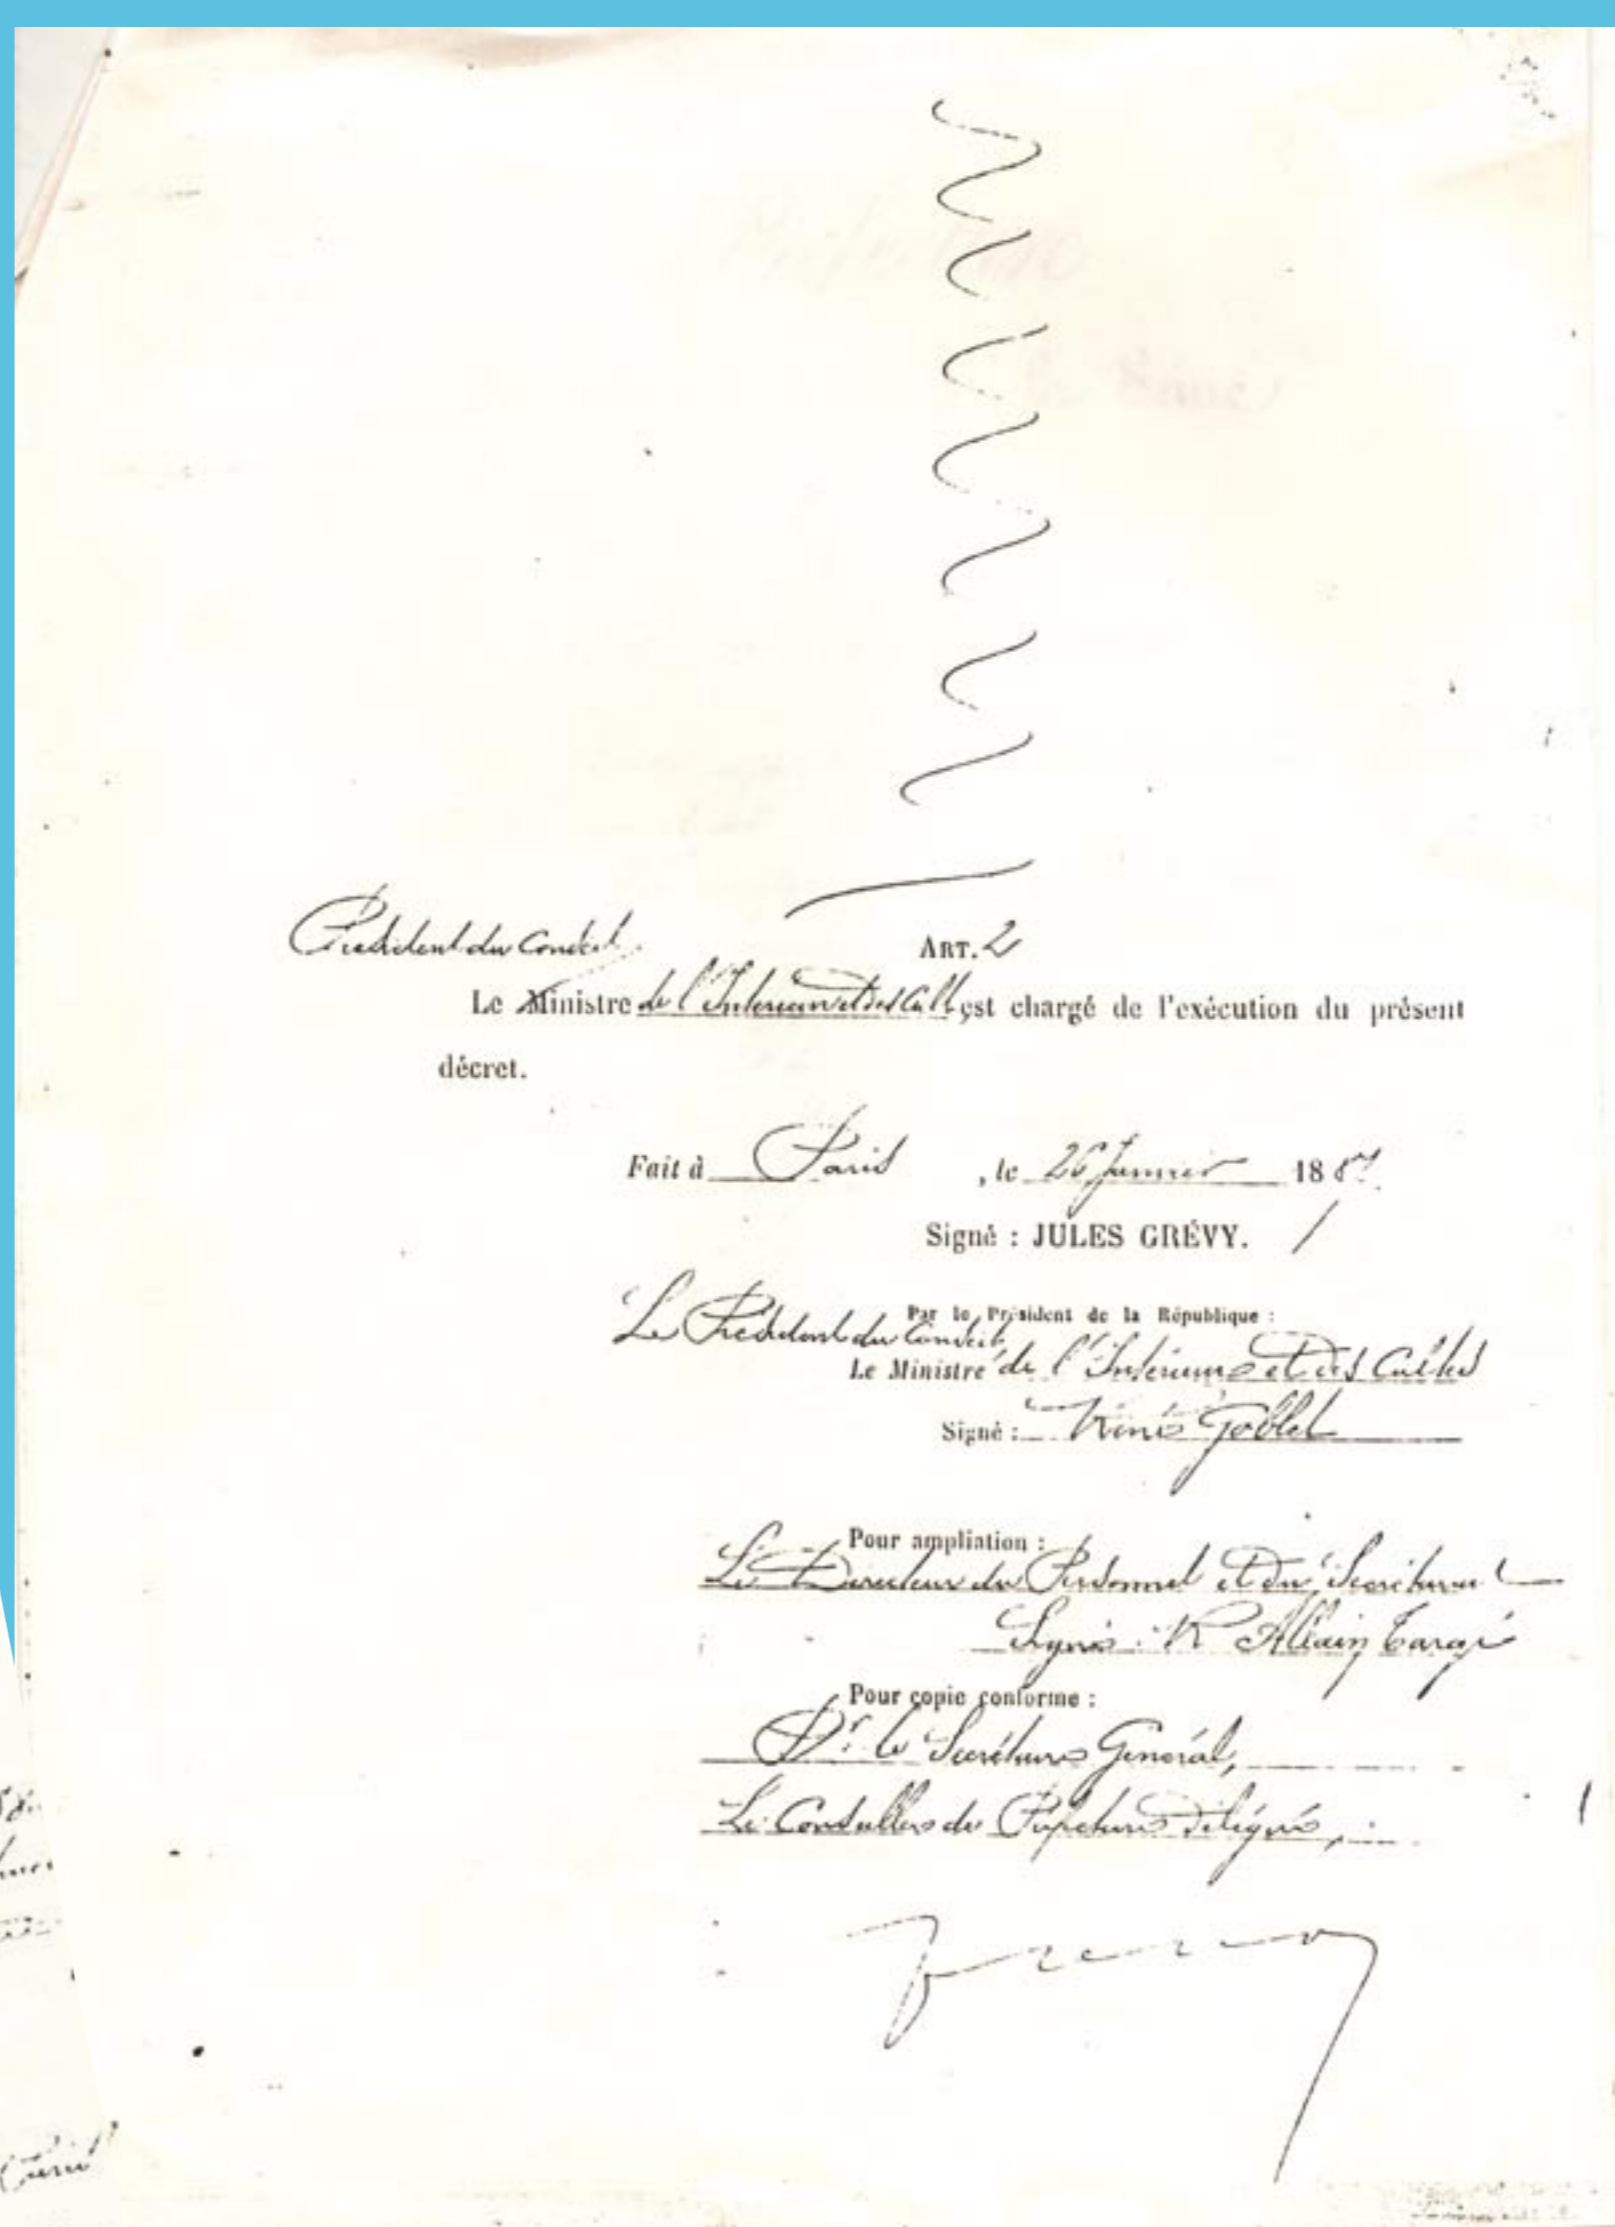 Président du Conseil,
ART. 2
Le Ministre de l'Intérieur et des Cultes est chargé de l'exécution du présent
décret.
Fait à Paris, le 26 Janvier 1887
Signé : JULES GRÉVY.
Par le Président de la République :
Le Président du Conseil,
Le Ministre de l'Intérieur et des Cultes
Signé : René Goblet
Pour ampliation :
Le Directeur du Personnel et du Secrétariat
Signé : R Allain Targé
Pour copie conforme :
Pr. le Secrétaire Général,
Le Conseiller de Préfecture Délégué,